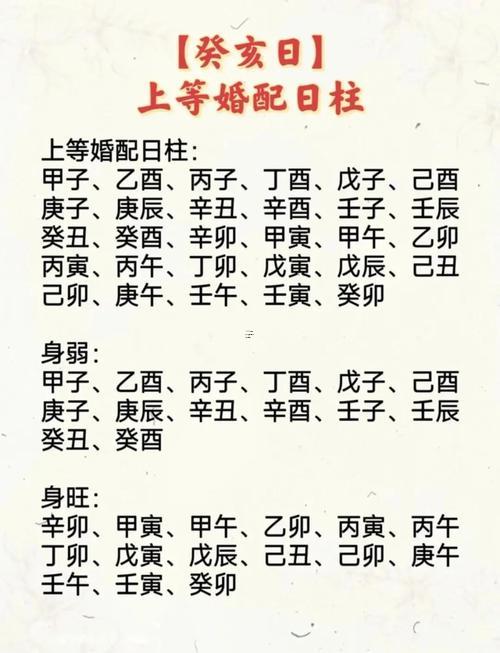 【癸亥日】
上等婚配日柱
上等婚配日柱：
甲子、乙酉、丙子、丁酉、戊子、己酉
庚子、庚辰、辛丑、辛酉、壬子、壬辰
癸丑、癸酉、辛卯、甲寅、甲午、乙卯
丙寅、丙午、丁卯、戊寅、戊辰、己丑
己卯、庚午、壬午、壬寅、癸卯
身弱：
甲子、乙酉、丙子、丁酉、戊子、己酉
庚子、庚辰、辛丑、辛酉、壬子、壬辰
癸丑、癸酉
身旺：
辛卯、甲寅、甲午、乙卯、丙寅、丙午
丁卯、戊寅、戊辰、己丑、己卯、庚午
壬午、壬寅、癸卯